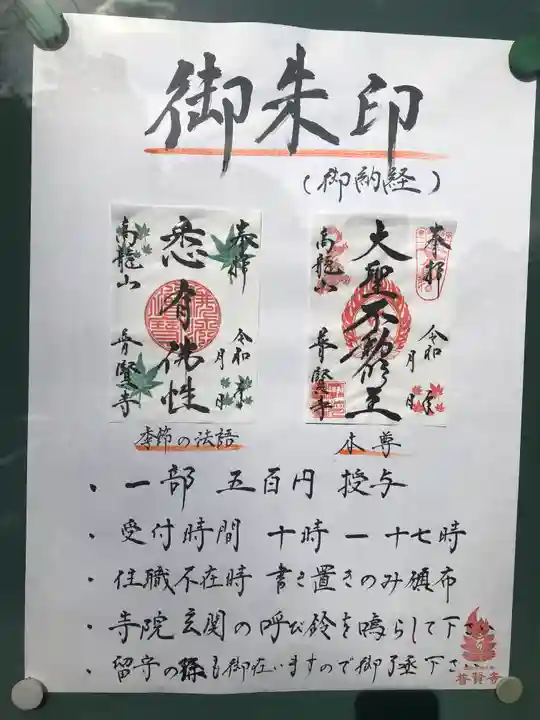 御朱印
(御納経)
奉拝
悉有佛性
高龍山
普賢寺
令和 年
月 日
季節の法語
奉拝
大聖不動明王
高龍山
普賢寺
令和 年
月 日
本尊
・一部 五百円 授与
・受付時間 十時ー十七時
・住職不在時 書き置きのみ頒布
・寺院玄関の呼び鈴を鳴らして下さい
・留守の様も御在いますので御了承下さ
普賢寺